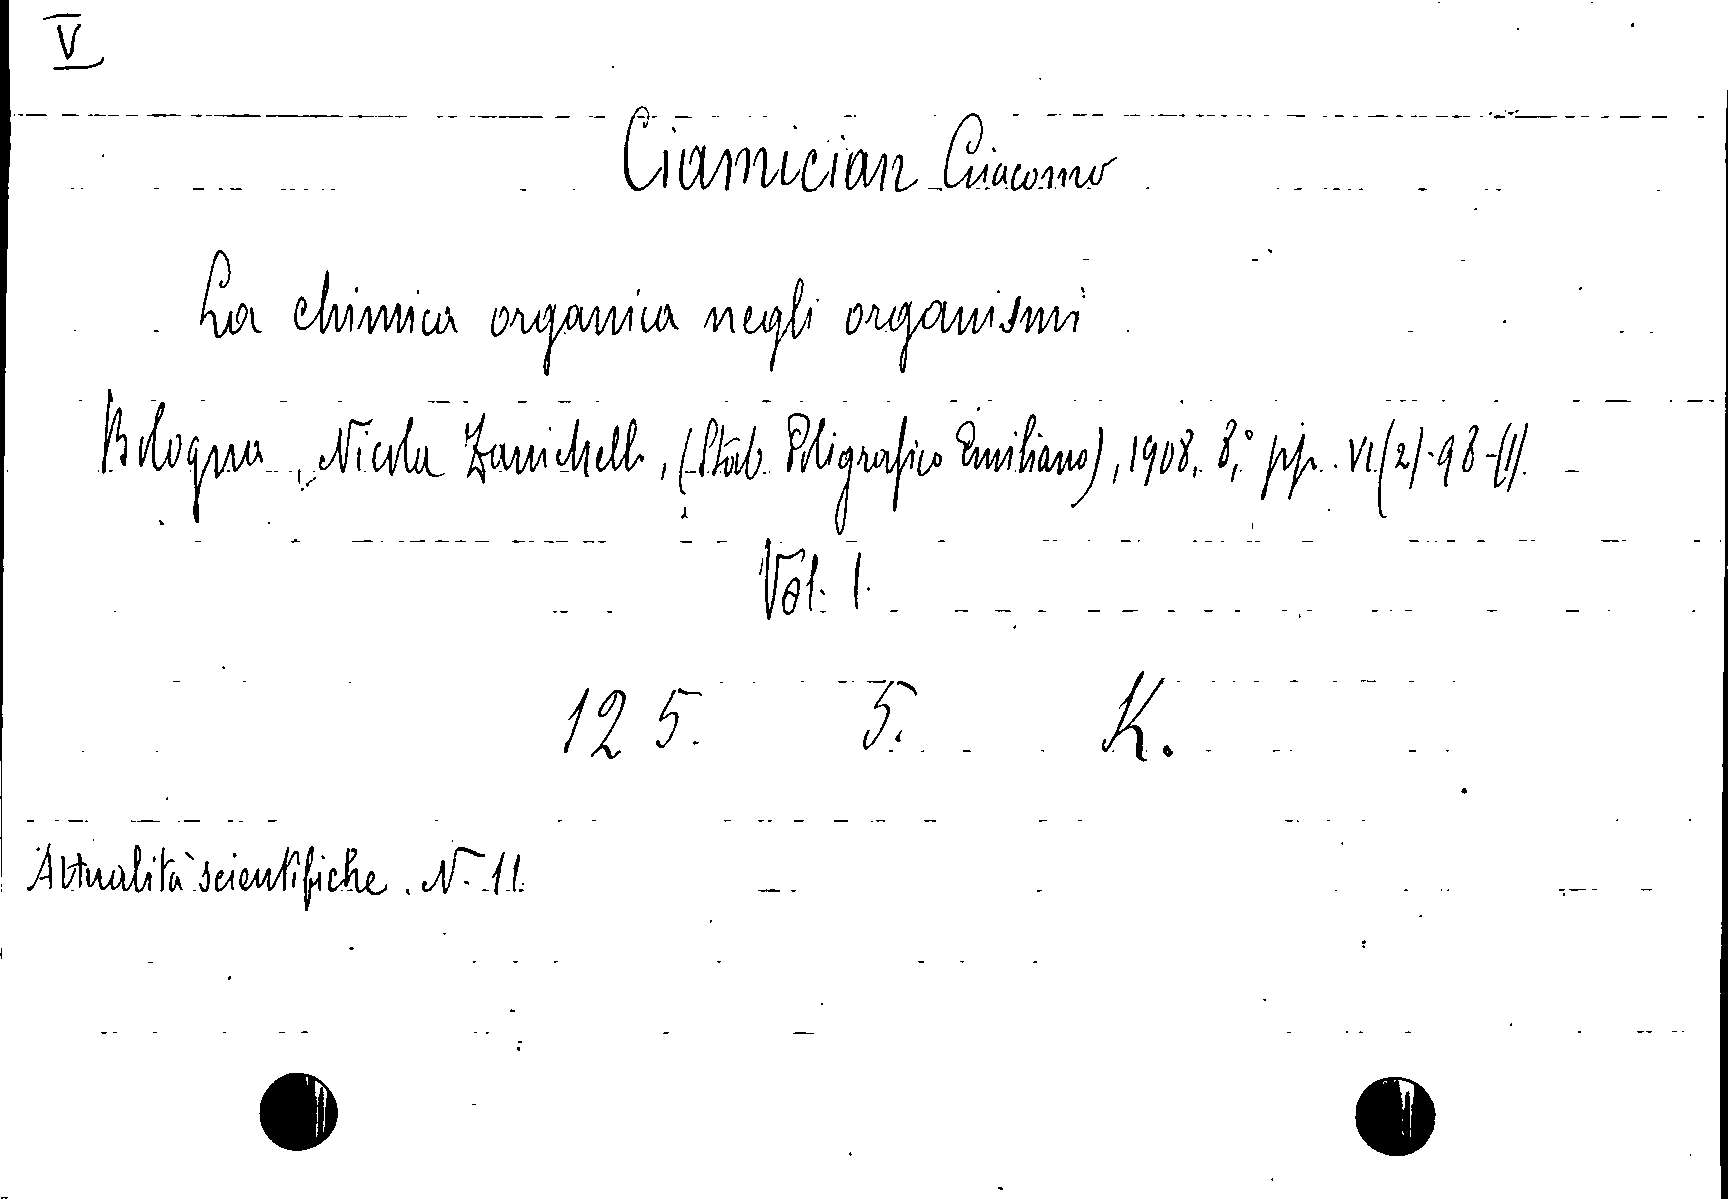 V
Ciamician Giacomo
La chimica organica negli organismi
Bologna, Nicola Zanichelli, (Stab. Poligrafico Emiliano), 1908, 8,° pp. VI(2)-98-(1).
Vol. 1.
125. 5. K.
Attualità scientifiche. N. 11.